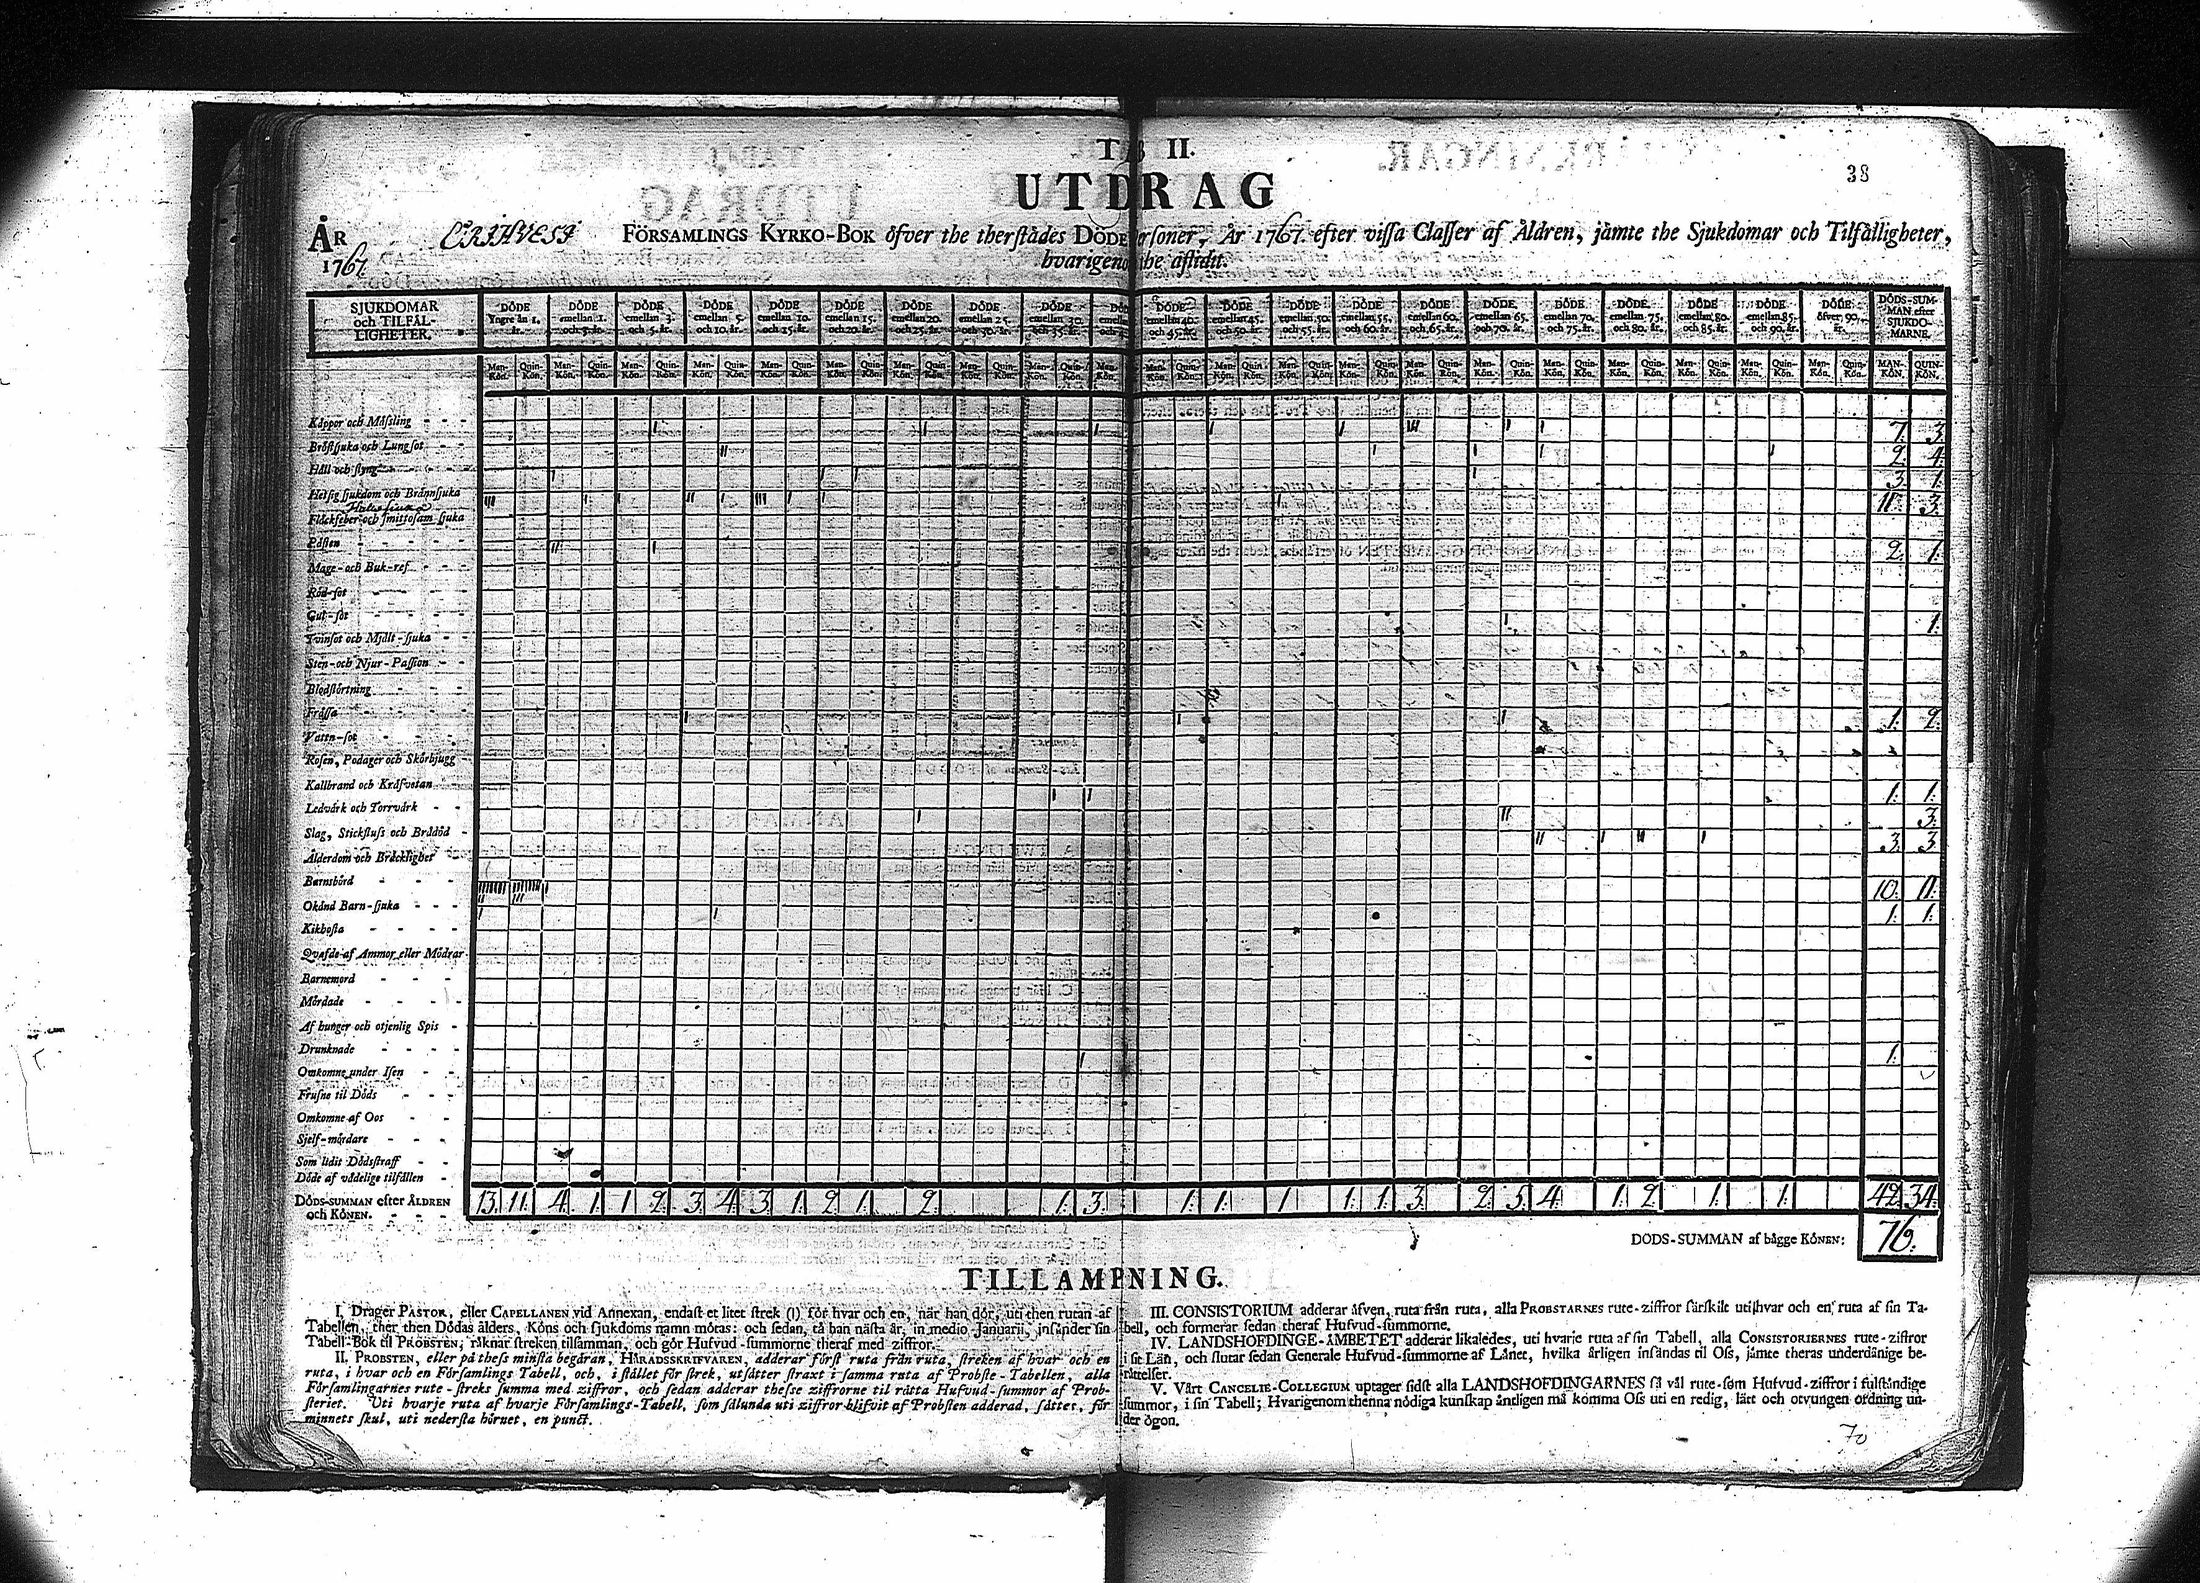 TAB II.
UTDRAG
38
ÅR 1767. CRIHVESI FÖRSAMLINGS KYRKO-BOK öfver the therstådes DÖDE Personer, År 1767. efter vissa Classer af Åldren, jämte the Sjukdomar och Tilfälligheter,
hvarigenom the aflidit.
SJUKDOMAR och TILFÄLLIGHETER.
DÖDE Yngre än 1. år. DÖDE emellan 1. och 3. år. DÖDE emellan 3. och 5. år. DÖDE emellan 5. och 10. år. DÖDE emellan 10. och 15. år. DÖDE emellan 15. och 20. år. DÖDE emellan 20. och 25. år. DÖDE emellan 25. och 30. år. DÖDE emellan 30. och 35. år. DÖDE emellan DÖDE emellan 40. och 45. år. DÖDE emellan 45. och 50. år. DÖDE emellan 50. och 55. år. DÖDE emellan 55. och 60. år. DÖDE emellan 60. och 65. år. DÖDE emellan 65. och 70. år. DÖDE emellan 70. och 75. år. DÖDE emellan 75. och 80. år. DÖDE emellan 80. och 85. år. DÖDE emellan 85. och 90. år. DÖDE öfver 90. år. DÖDS-SUMMAN efter SJUKDOMARNE.
Man-Kön. Quin-Kön. Man-Kön. Quin-Kön. Man-Kön. Quin-Kön. Man-Kön. Quin-Kön. Man-Kön. Quin-Kön. Man-Kön. Quin-Kön. Man-Kön. Quin-Kön. Man-Kön. Quin-Kön. Man-Kön. Quin-Kön. Man-Kön. Man-Kön. Quin-Kön. Man-Kön. Quin-Kön. Man-Kön. Quin-Kön. Man-Kön. Quin-Kön. Man-Kön. Quin-Kön. Man-Kön. Quin-Kön. Man-Kön. Quin-Kön. Man-Kön. Quin-Kön. Man-Kön. Quin-Kön. Man-Kön. Quin-Kön. Man-Kön. Quin-Kön. MAN-KÖN. QUIN-KÖN.
Koppor och Mässling
7. 3.
Bröstsjuka och Lungsot
2. 4.
Håll och styng
3. 1.
Hetsig sjukdom och Brännsjuka
11. 3.
Fläckfeber och smittosam sjuka
Pästen
2. 1.
Mage- och Buk-ref
Röd-sot
Gul-sot
1.
Tvinsot och Mjält-sjuka
Sten- och Njur-Passion
Blodstörtning
Frässa
1. 2.
Vattn-sot
Rosen, Podager och Skörbjugg
Kallbrand och Kräfvetan
1. 1.
Ledvärk och Torrvärk
3.
Slag, Stickfluss och Brådöd
3. 3.
Ålderdom och Bräcklighet
Barnsbörd
10. 11.
Okänd Barn-sjuka
1. 1.
Kikhosta
Qvafde af Ammor eller Mödrar
Barnemord
Mördade
Af hunger och otjenlig Spis
Drunknade
1.
Omkomne under Isen
Frusne til Döds
Omkomne af Oos
Sjelf-mördare
Som lidit Dödsstraff
Döde af vådelige tilfällen
DÖDS-SUMMAN efter ÅLDREN och KÖNEN. 13. 11. 4. 1. 1 2. 3. 4. 3. 1. 2. 1. 2. 1. 3. 1. 1. 1. 1. 1. 3. 2. 5. 4. 1. 2. 1. 1. 42. 34.
DÖDS-SUMMAN af bägge KÖNEN: 76.
TILLÄMPNING.
I. Drager PASTOR, eller CAPELLANEN vid Annexan, endast et litet strek (l) för hvar och en, när han dör, uti then rutan af
Tabellen, ther then Dödas ålders, Köns och sjukdoms namn mötas: och sedan, tå han nästa år, in medio Januarii, insänder sin
Tabell-Bok til PROBSTEN, räknar streken tilsamman, och gör Hufvud-summorne theraf med ziffror.
II. PROBSTEN, eller på thess minsta begäran, HÄRADSSKRIFVAREN, adderar först ruta från ruta, streken af hvar och en
ruta, i hvar och en Församlings Tabell, och, i stället för strek, utsätter straxt i samma ruta af Probste-Tabellen, alla
Församlingarnes rute-streks summa med ziffror, och sedan adderar thesse ziffrorne til rätta Hufvud-summor af Probsteriet. Uti hvarje ruta af hvarje Församlings-Tabell, som sålunda uti ziffror blifvit af Probsten adderad, sättes, för
minnets skul, uti nedersta hörnet, en punct.
III. CONSISTORIUM adderar äfven, ruta från ruta, alla PROBSTARNES rute-ziffror särskilt uti hvar och en ruta af sin Tabell, och formerar sedan theraf Hufvud-summorne.
IV. LANDSHÖFDINGE-ÄMBETET adderar likaledes, uti hvarje ruta af sin Tabell, alla CONSISTORIERNES rute-ziffror
i sit Län, och slutar sedan Generale Hufvud-summorne af Länet, hvilka årligen insändas til Oss, jämte theras underdånige berättelser.
V. Vårt CANCELIE-COLLEGIUM uptager sidst alla LANDSHÖFDINGARNES så väl rute- som Hufvud-ziffror i fulständige
summor, i sin Tabell; Hvarigenom thenna nödiga kunskap äntligen må komma Oss uti en redig, lätt och otvungen ordning under ögon.
70